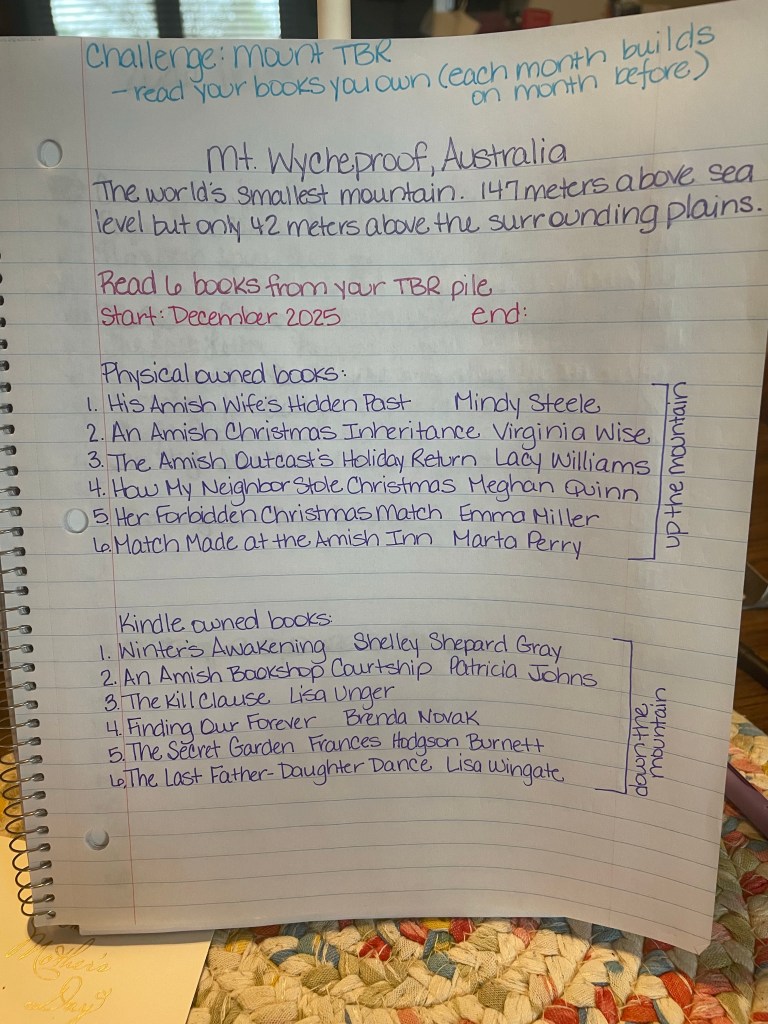 Challenge: Mount TBR
- read your books you own (each month builds
on month before)
Mt. Wycheproof, Australia
The world's smallest mountain. 147 meters above sea
level but only 42 meters above the surrounding plains.
Read 6 books from your TBR pile
Start: December 2025 end:
Physical owned books:
1. His Amish Wife's Hidden Past Mindy Steele
2. An Amish Christmas Inheritance Virginia Wise
3. The Amish Outcast's Holiday Return Lacy Williams
4. How My Neighbor Stole Christmas Meghan Quinn
5. Her Forbidden Christmas Match Emma Miller
6. Match Made at the Amish Inn Marta Perry
up the mountain
Kindle owned books:
1. Winter's Awakening Shelley Shepard Gray
2. An Amish Bookshop Courtship Patricia Johns
3. The Kill Clause Lisa Unger
4. Finding Our Forever Brenda Novak
5. The Secret Garden Frances Hodgson Burnett
6. The Last Father-Daughter Dance Lisa Wingate
down the
mountain
Mother's
Day